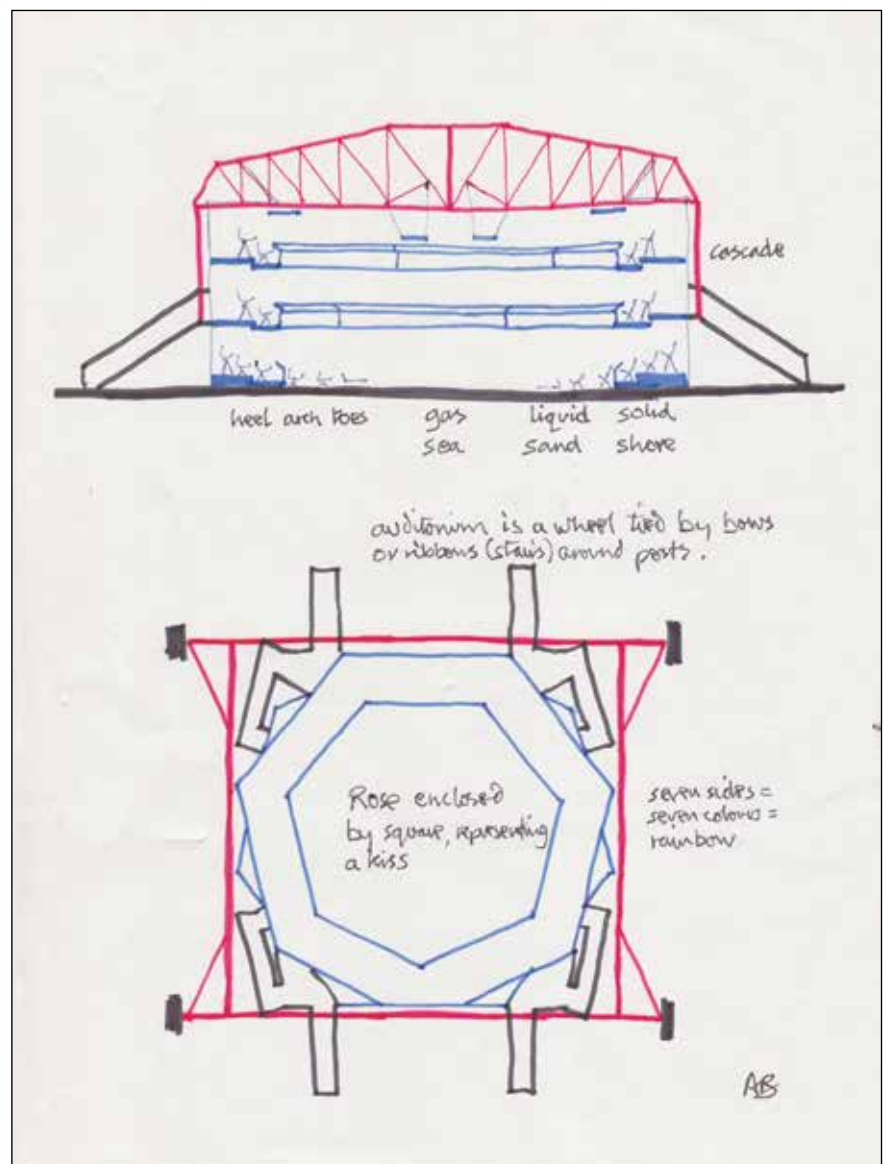 cascade
heel arch toes
gas
sea
liquid
sand
solid
shore
auditorium is a wheel tied by bows
or ribbons (stairs) around posts.
Rose enclosed
by square, representing
a kiss
seven sides =
seven colours =
rainbow
AB